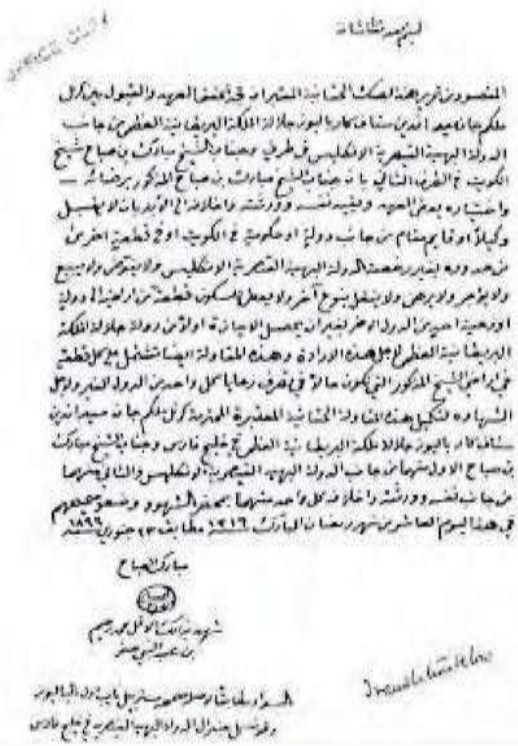 المقصود من تحرير هذا الصك الحقانية المشهرات في تحقق العهد والقبول بين كرنل
ملكم جان ميد الدين سناف كار باليوز جلالة الملكة البريطانية العظمى من جانب
الدولة البهية القيصرية الانكليس في طرف وجناب الشيخ مبارك بن صباح شيخ
الكويت في الطرف الثاني بان جناب الشيخ مبارك بن صباح المذكور برضائه
واختياره يعطي العهد ويقيد نفسه وورثته واخلافه الى الابد بان لا يقبل
وكيلا او قايم مقام من جانب دولة او حكومة في الكويت او في قطعة اخرى من
حدوده بغير رخصة الدولة البهية القيصرية الانكليس ولا يفوض ولا يبيع
ولا يؤجر ولا يرهن ولا ينقل بنوع آخر ولا يعطي للسكون قطعة من اراضيه الى دولة
او رعية احد من الدول الاخر بغير ان يحصل الاجازة اولا من دولة جلالة الملكة
البريطانية العظمى لاجل هذه الارادة وهذه المقاولة ايضا تشتمل على كل قطعة
من اراضي الشيخ المذكور التي تكون حالا في تصرف رعايا كل واحد من الدول الغير ولاجل
الشهادة لتكميل هذه المقاولة الحقانية المعتبرة المحترمة كرنل ملكم جان ميد الدين
سناف كار باليوز جلالة ملكة البريطانية العظمى في خليج فارس وجناب الشيخ مبارك
بن صباح الاول منهما من جانب الدولة البهية القيصرية الانكليس والثاني منهما
من جانب نفسه وورثته واخلافه كل واحد منهما بمحضر الشهود وضعوا صحيحهم
في هذا اليوم العاشر من شهر رمضان المبارك ١٣١٦ مطابق ٢٣ جنوري ١٨٩٩
مبارك الصباح
شهد بذلك الاقل محمد رحيم
بن عبد النبي صفر